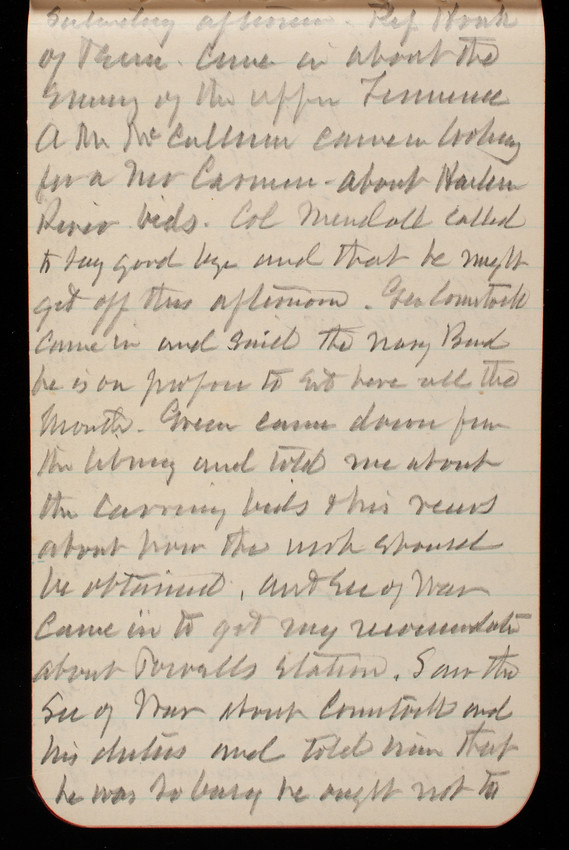 Saturday afternoon. Rep Houk
of Tenn. came in about the
Survey of the upper Tennessee
A Mr McCullum came in looking
for a Mr Carmen about Harlem
River bids. Col Mendell called
to say good bye and that he might
get off this afternoon. Gen Comstock
came in and said the navy Board
he is on propose to sit here all the
Month. Green came down from
the library and told me about
the bids & his views
about how the work should
be obtained. Asst Sec of War
Came in to get my recomendatn
about Powells station. Saw the
Sec of War about Comstock and
his duties and told him that
he was so busy he ought not to